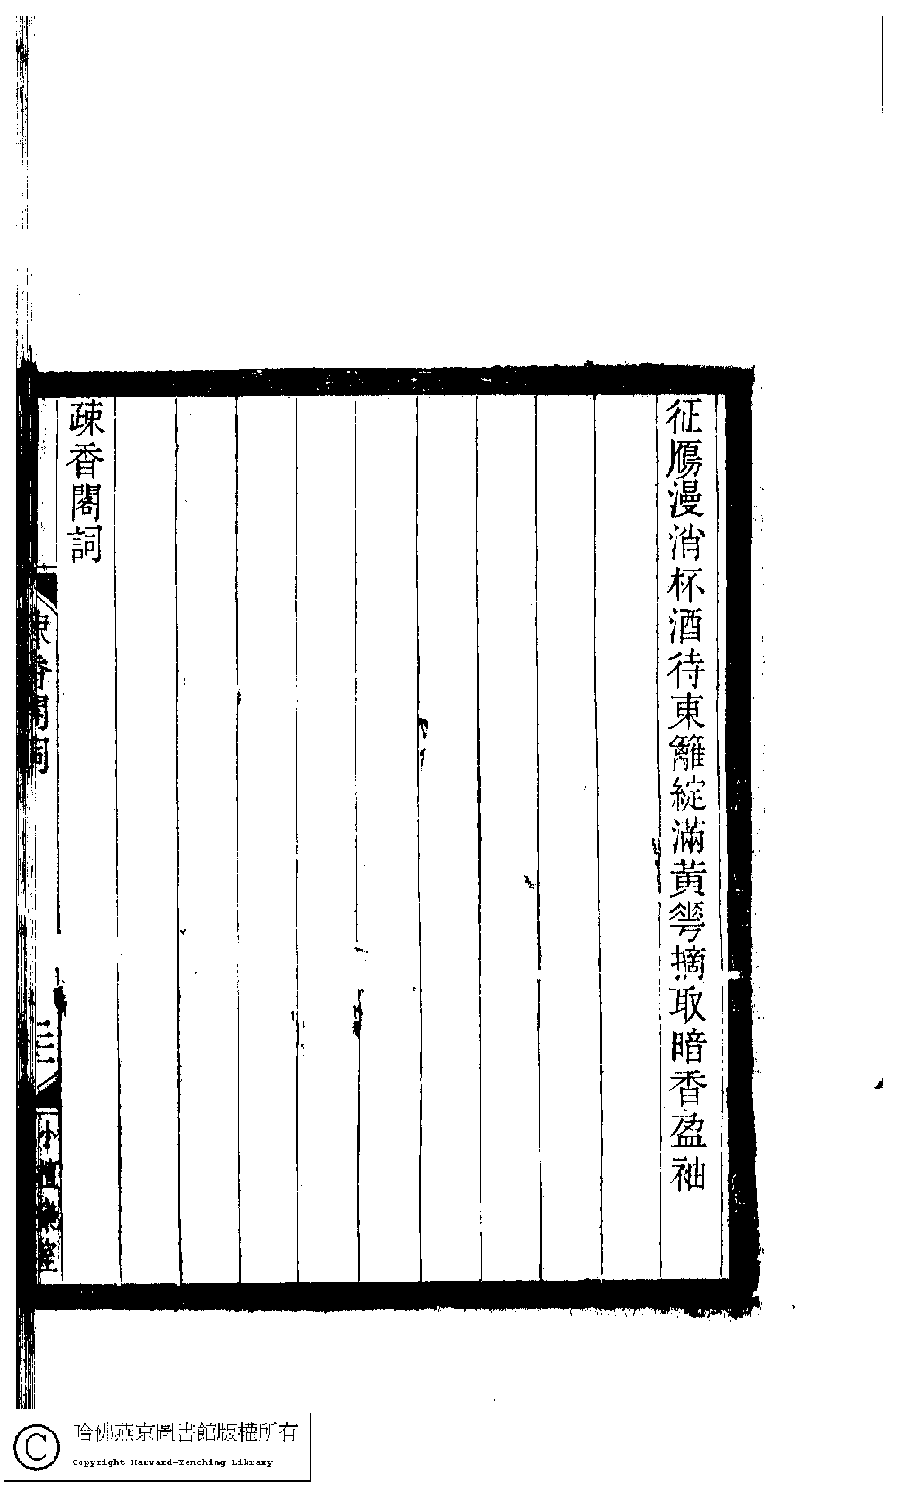 征鴈漫消杯酒待東籬綻滿黃𠌶摘取暗香盈袖
疎香閣詞
疎香閣詞
小檀欒室
哈佛燕京圖書館版權所有
Copyright Harvard-Yenching Library